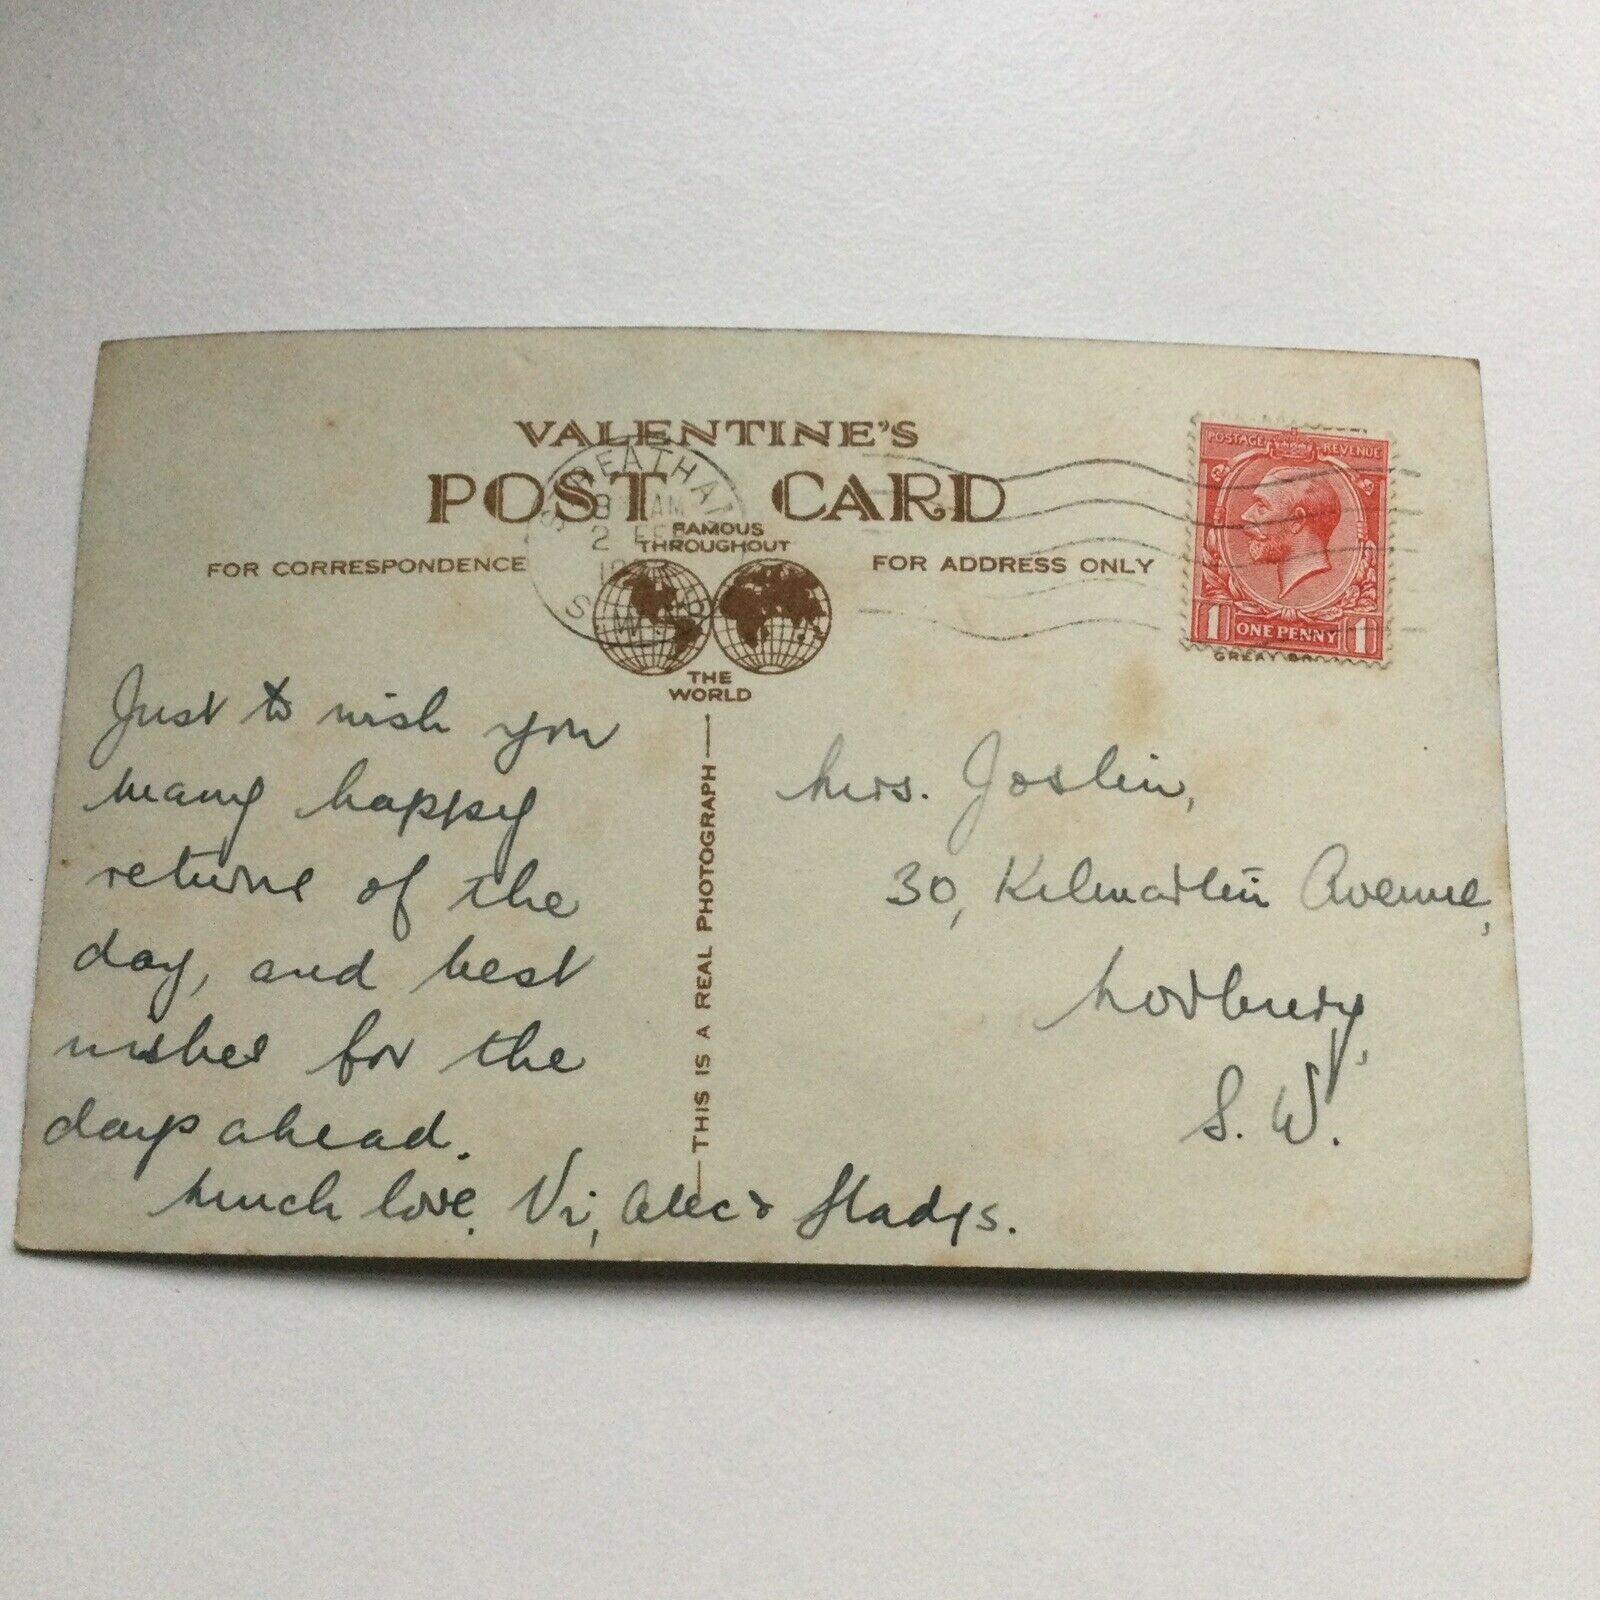 VALENTINE'S
POST CARD
STREATHAM
8 AM
2 FE
19
S.W.
FAMOUS
THROUGHOUT
THE
WORLD
FOR CORRESPONDENCE
FOR ADDRESS ONLY
POSTAGE REVENUE
1 ONE PENNY 1
GREAT BR
THIS IS A REAL PHOTOGRAPH
Just to wish you
many happy
returns of the
day, and best
wishes for the
days ahead.
Much love, Vi, Alec & Gladys.
Mrs. Joslin,
30, Kilmartin Avenue,
Norbury,
S. W.